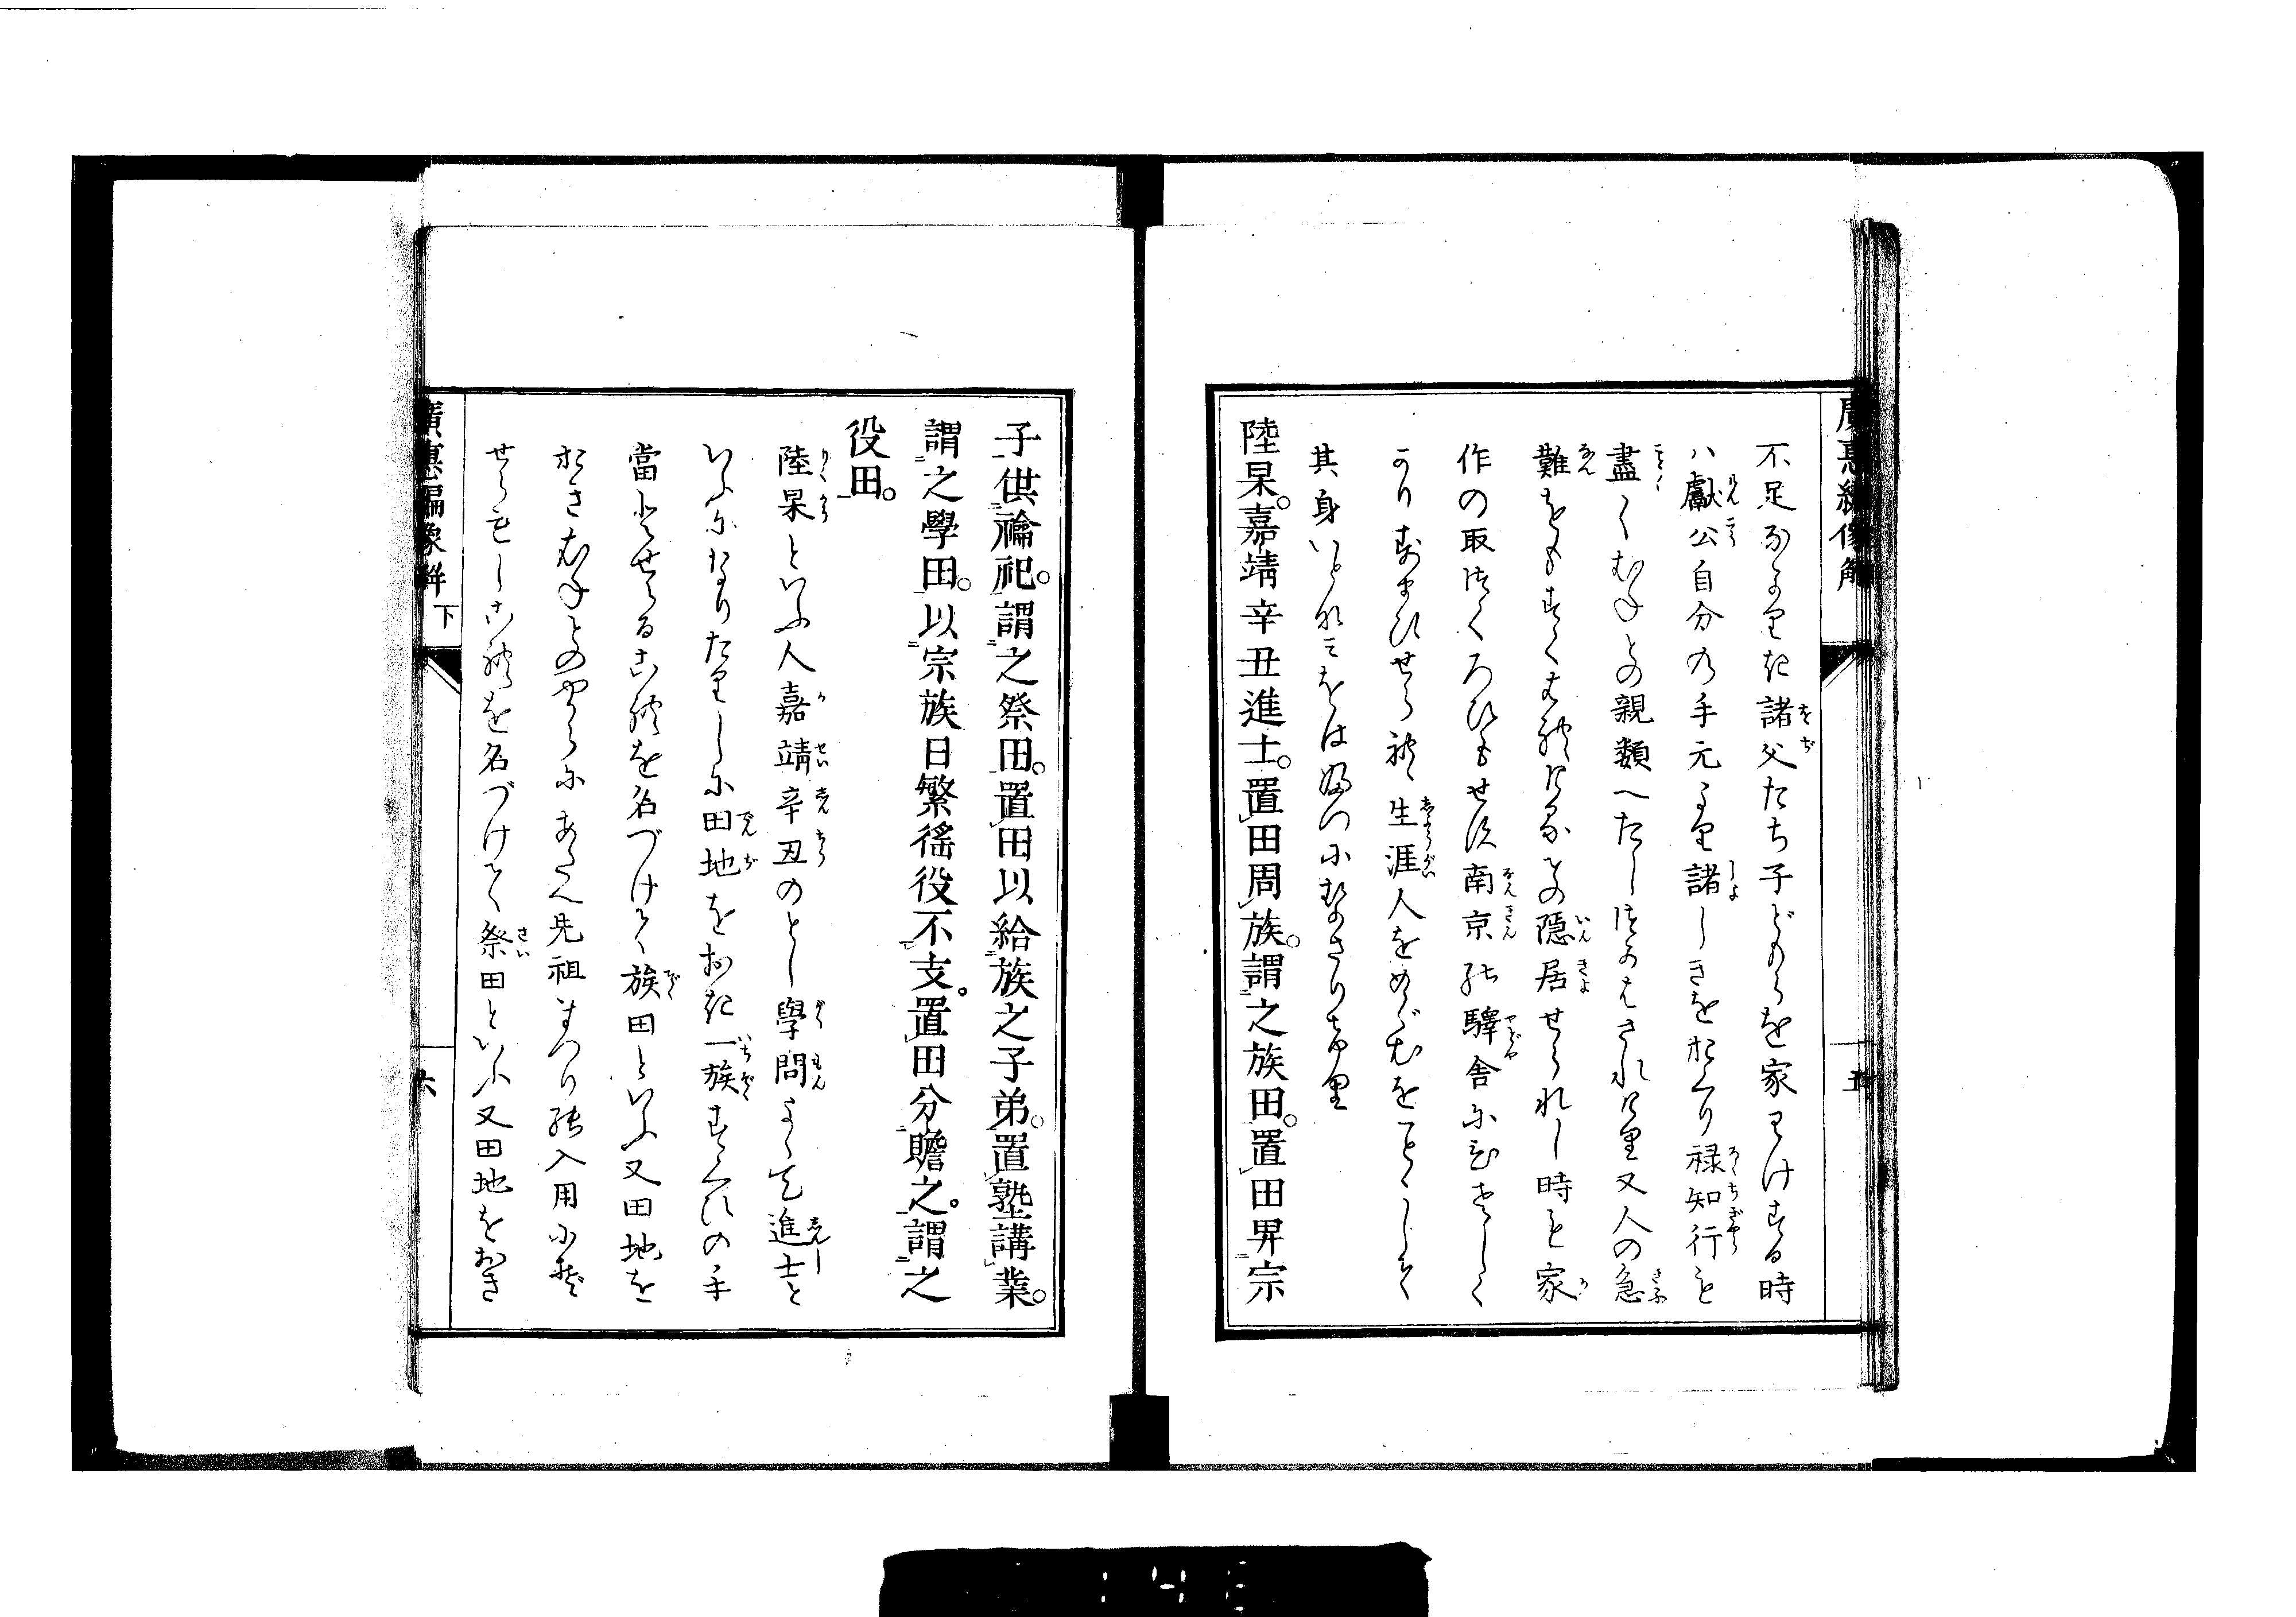 不足なりき諸父たち子どもらを家わけする時
ハ獻公自分の手元より諸しきをおくり祿知行を
盡くむねとの親類へたしつかはされけり又人の急
難をもすくはれける其の隱居せられし時も家
作の取つくろひもせず南京の驛舎に
かりずまひせられ生涯人をめぐむをことゝして
其身いとなミをは
陸杲。嘉靖辛丑進士。置田周族。謂之族田。置田畀宗
子供禴祀。謂之祭田。置田以給族之子弟。置塾講業。
謂之學田。以宗族日繁徭役不支。置田分贍之。謂之
役田。
陸杲といふ人嘉靖辛丑のとし學問よくて進士と
いふになりたりしに田地をおき一族すくひの手
當とせるこれを名づけて族田といふ又田地を
おきむねとのやからにあたへ先祖まつりの入用に
せられしこれを名づけて祭田といふ又田地をおき
廣惠編像解 下
六